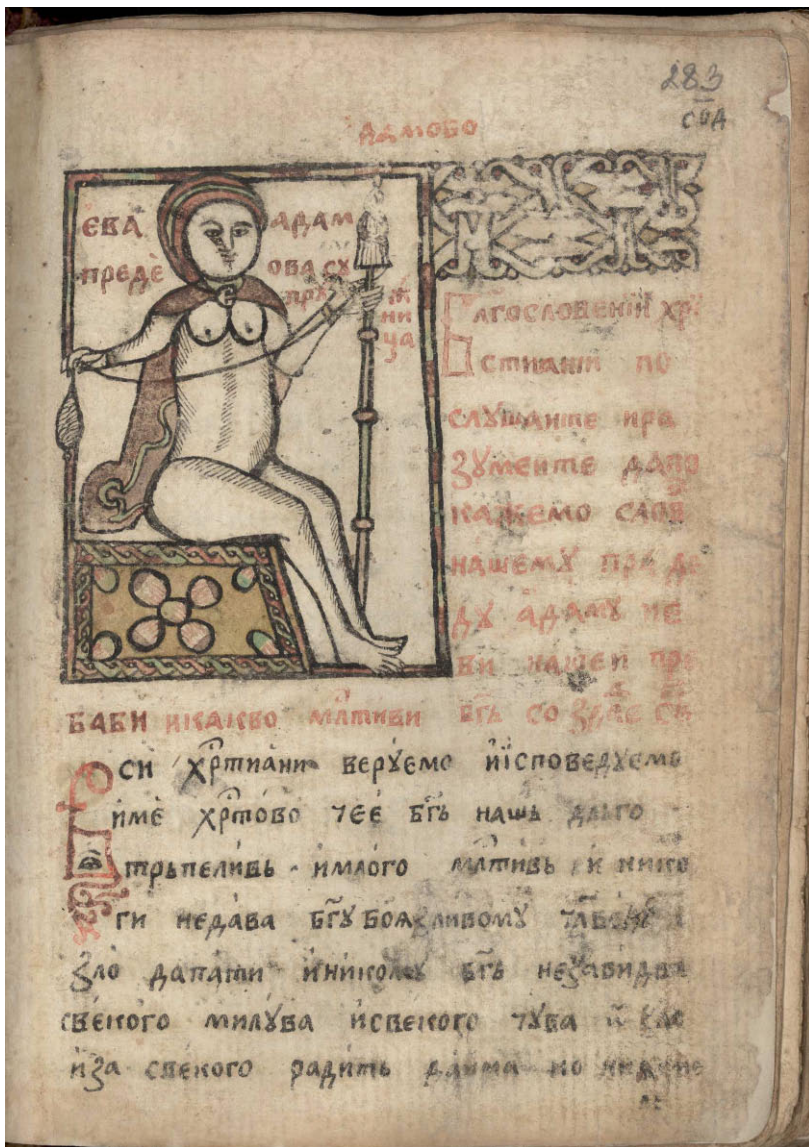 283
СПА
АДАМОВО
ЕВА АДАМ
ПРЕДЕ ОВА СУ
ПРУ Ж
НИ
ЦА
БЛГОСЛОВЕНІИ ХР҇
СТИАНИ ПО
СЛУШАИТЕ И РА
ЗУМЕИТЕ ДА ПО
КАЖЕМО
НАШЕМУ ПРА ДЕ
ДУ АДАМУ И Е
ВИ НАШЕИ ПРЕ
БАБИ И КАКВО МЛ҇ТИВИ БГ҃Ь СОЗДАЕ
СИ ХР҇ТИА́НИ ВЕРУ́ЕМО И ИСПОВЕДУЕМО
И́МЕ ХР҇ТО́ВО ЧЕЕ́ БГ҃Ь НАШЬ ДЛЬГО
ТРЬПЕЛИ́ВЬ И МЛО́ГО МЛ҇ТИВЬ И НИКО
ГИ НЕДА́ВА БГ҃У БОЯ́ЗЛИВОМУ
ЗЛО ДАПА́ТИ И НИКО́МУ БГ҃Ь НЕЗАВИДВА
СВЕ́КОГО МИЛУ́ВА И СВЕКОГО ЧУ́ВА И
И ЗА СВЕ́КОГО РАДИ́ТЬ ДА И́МА